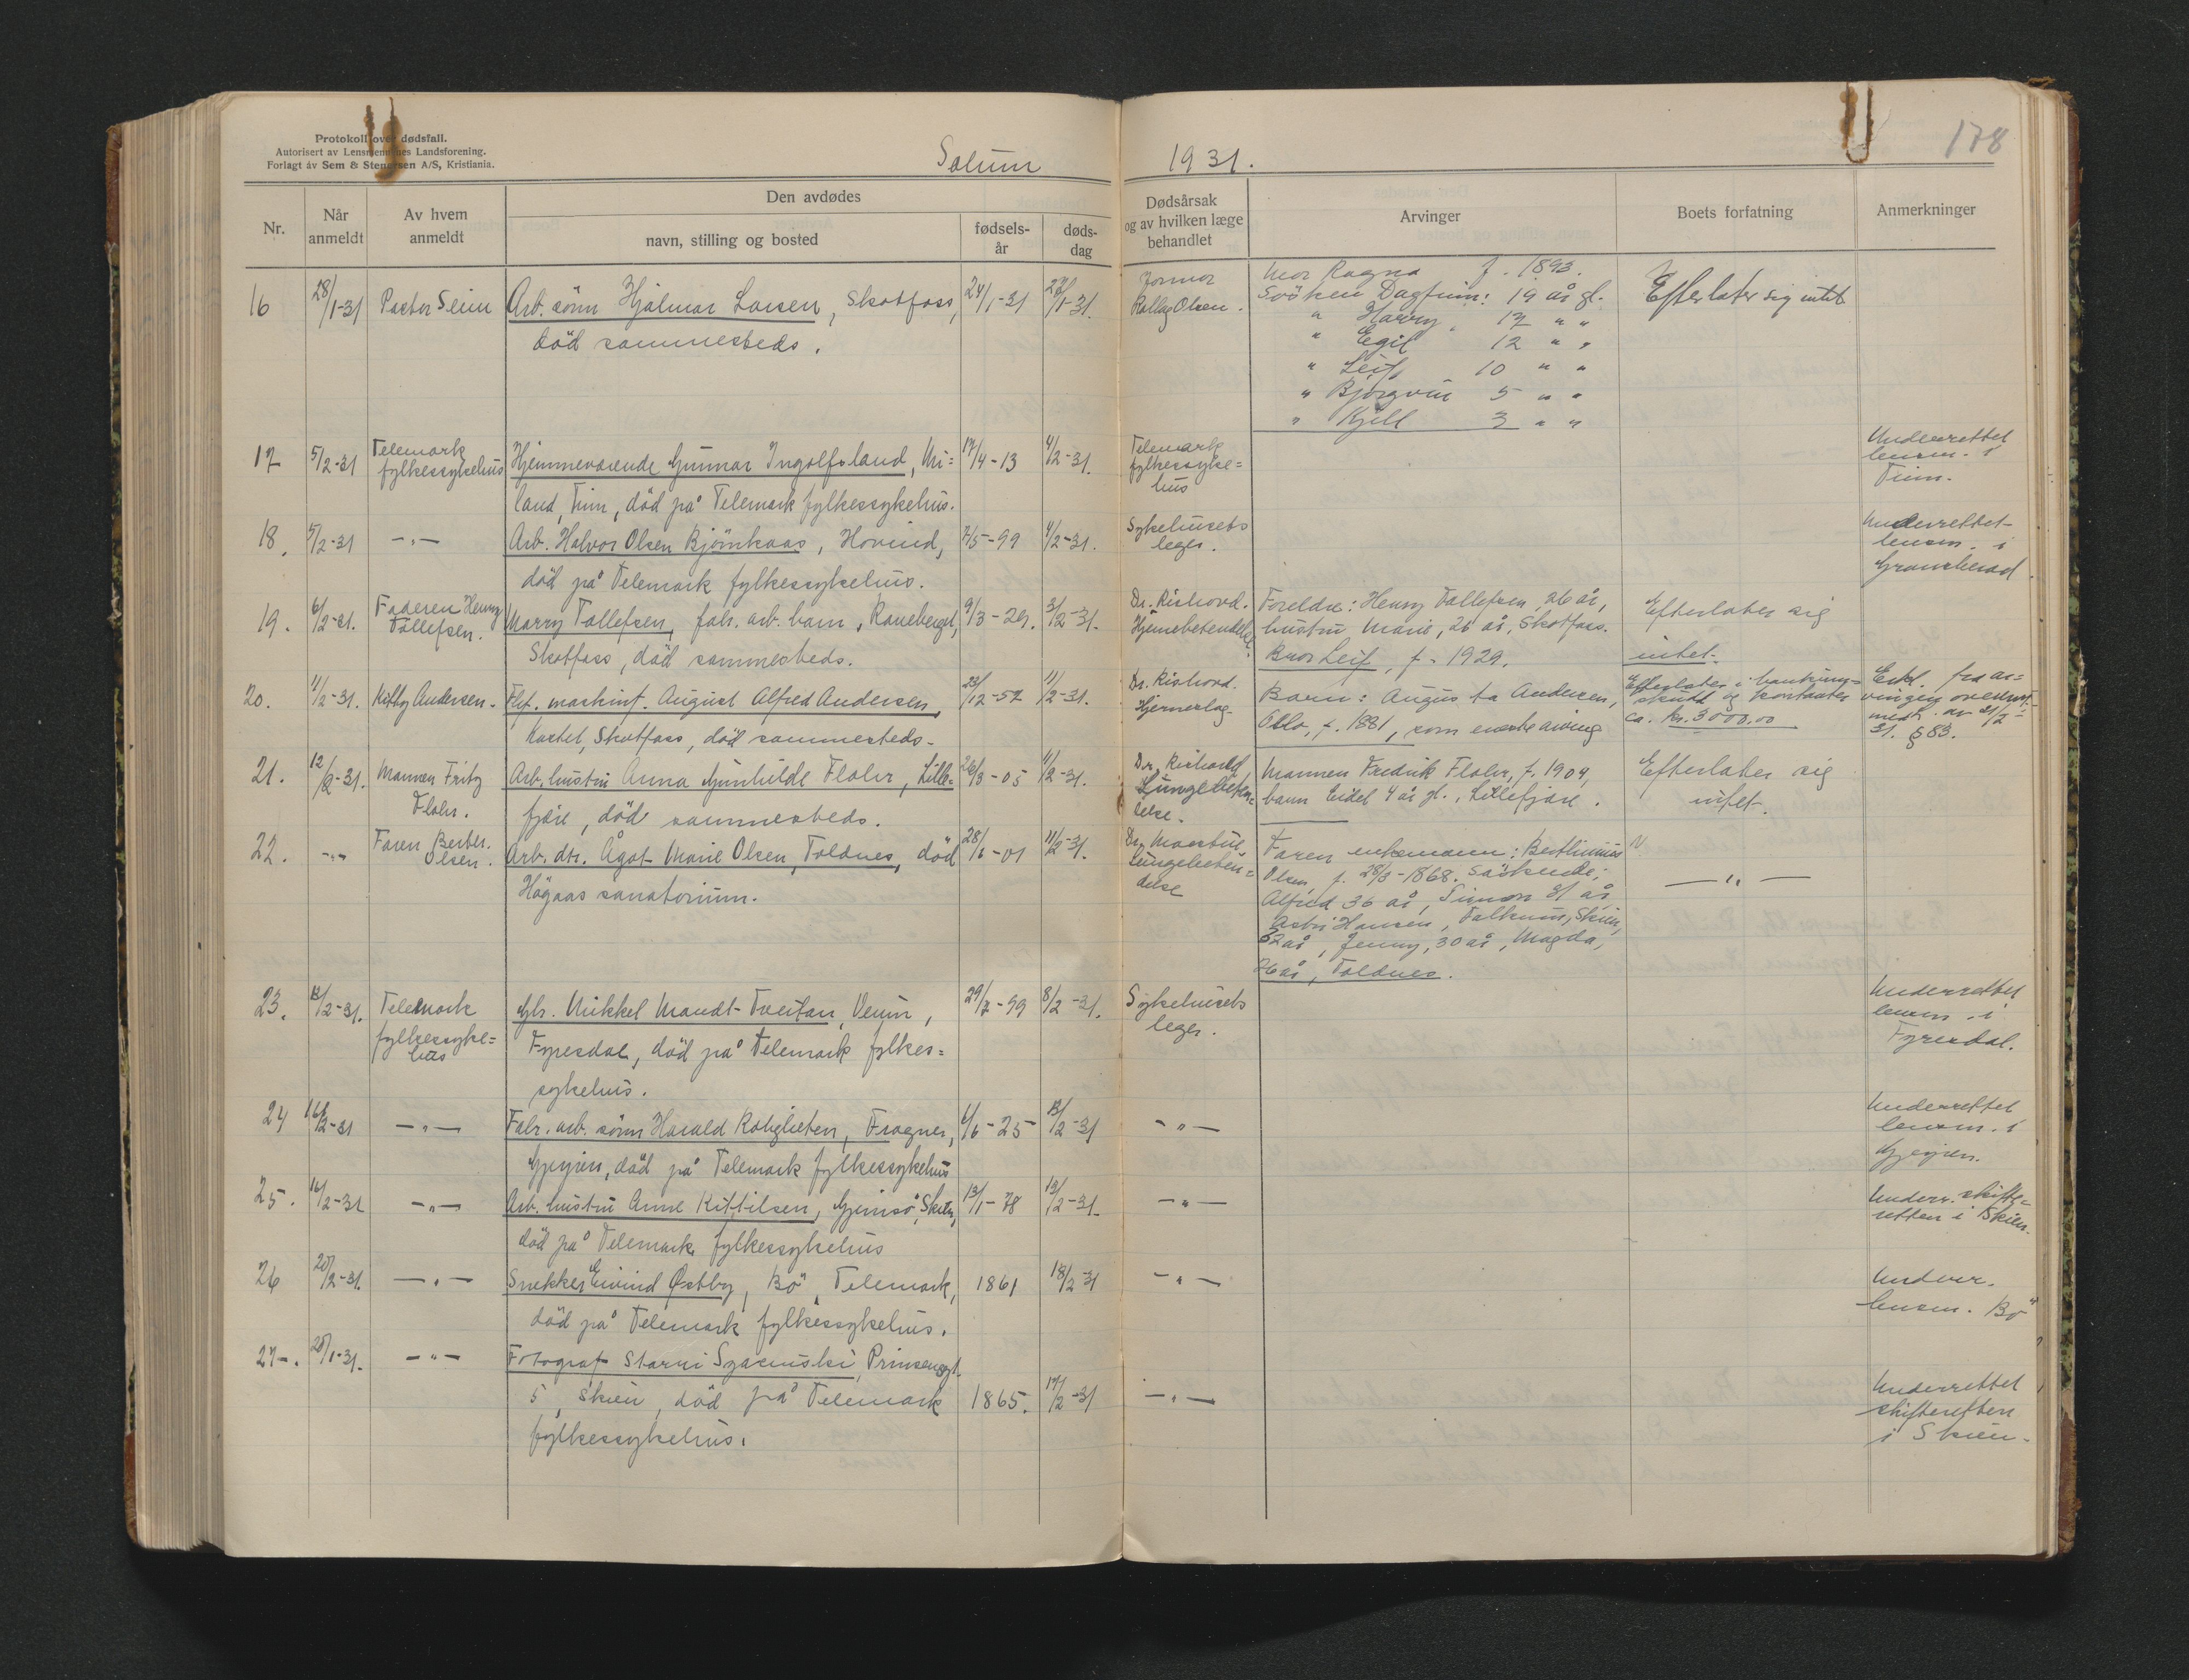 Protokoll over dødsfall.
Autorisert av Lensmennenes Landsforening.
Forlagt av Sem & Stenersen A/S, Kristiania.
Solum 1931.
178
Nr.
Når anmeldt
Av hvem anmeldt
Den avdødes
navn, stilling og bosted
fødsels-år
døds-dag
Dødsårsak og av hvilken læge behandlet
Arvinger
Boets forfatning
Anmerkninger
16 28/1-31 Pastor Seim Arb. sönn Hjalmar Larsen, Skotfoss, 24/1-31 27/1-31. Jormor Mor Ragna f. 1893.
död sammesteds. Olsen. Sösken Dagfinn: 19 år gl. Efterlater sig intet
" Harry, 17 " "
" Egil 12 " "
" Leif 10 " "
" Björgvin 5 " "
" Kjell 3 " "
17 5/2-31 Telemark fylkessykehus Hjemmeværende Gunnar Ingolfsland, Mi= 17/4-13 4/2-31. Telemark fylkessyke= hus Underrettet lensm. i Tinn.
land, Tinn, död på Telemark fylkessykehus.
18. 5/2-31 -"- Arb. Halvor Olsen Bjömkaas, Hovind, 7/5-99 4/2-31. Sykehusets leger. Underrettet lensm. i Gransherad
död på Telemark fylkessykehus.
19. 6/2-31. Faderen Henry Tollefsen. Marry Tollefsen, fabr. arb. barn, Raneberget, 9/3-29. 3/2-31. Dr. Rishovd. Foreldre: Henry Tollefsen, 26 år, Efterlater sig
Skotfoss, död sammesteds. hustru Marie, 26 år, Skotfoss. intet.
Bror Leif, f. 1929.
20. 11/2-31. Kitty Andersen. Flef. maskinf. August Alfred Andersen, 23/12-52 11/2-31. Dr. Rishovd. Hjerneslag Barn: Augusta Andersen, Efterlater i bankinn= skudd og kontanter Erkl. fra ar=
Kastet, Skotfoss, död sammesteds. Oslo, f. 1881, som eneste arving ca. kr. 3000.00 vingen oversendt
31. § 83.
21. 12/2-31. Mannen Fritz Flohr. Arb. hustru Anna Gunhilde Flohr, Lille= 26/3-05 11/2-31. Dr. Rishovd, Lungebeten= delse. Mannen Fredrik Flohr, f. 1904, Efterlater sig
fjære, död sammesteds. barn Eidel 4 år gl., Lillefjære. intet.
22. -"- Faren Berter. Olsen. Arb. dtr. Ågot Marie Olsen, Toldnes, död 28/1-01 11/2-31. Lungebeten= delse Faren enkemann: Bertinius -"-
Högaas sanatorium. Olsen, f. 28/3-1868. Söskende:
Alfred 36 år, Simon 31 år,
Astri Hansen, Falkum, Skien,
32 år, Jenny, 30 år, Magda,
26 år, Toldnes.
23. 13/2-31. Telemark fylkessyke= hus Gbr. Mikkel Mandt-Tveitan, Veum, 29/7-99 8/2-31. Sykehusets leger. Underrettet lensm. i Fyresdal.
Fyresdal, död på Telemark fylkes=
sykehus.
24 16/2-31 -"- Fabr. arb. sönn Harald Rolighetn, Frogner, 6/6-25 13/2-31 -"- Underrettet lensm. i Gjerpen.
Gjerpen, död på Telemark fylkessykehus
25. 16/2-31 -"- Arb. hustru Anne Kittilsen, Gjemsö, Skien, 13/1-78 13/2-31. -"- Underr. skifte= retten i Skien.
död på Telemark fylkessykehus
26 20/2-31. -"- Snekker Eivind Østby, Bö, Telemark, 1861 18/2-31 -"- Underr. lensm. Bö
död på Telemark fylkessykehus.
27. 20/1-31. -"- Fotograf Starri Szacinski, Prinsensgt.
5, Skien, död på Telemark 1865. 17/2-31 -"- Underrettet skifteretten i Skien.
fylkessykehus.